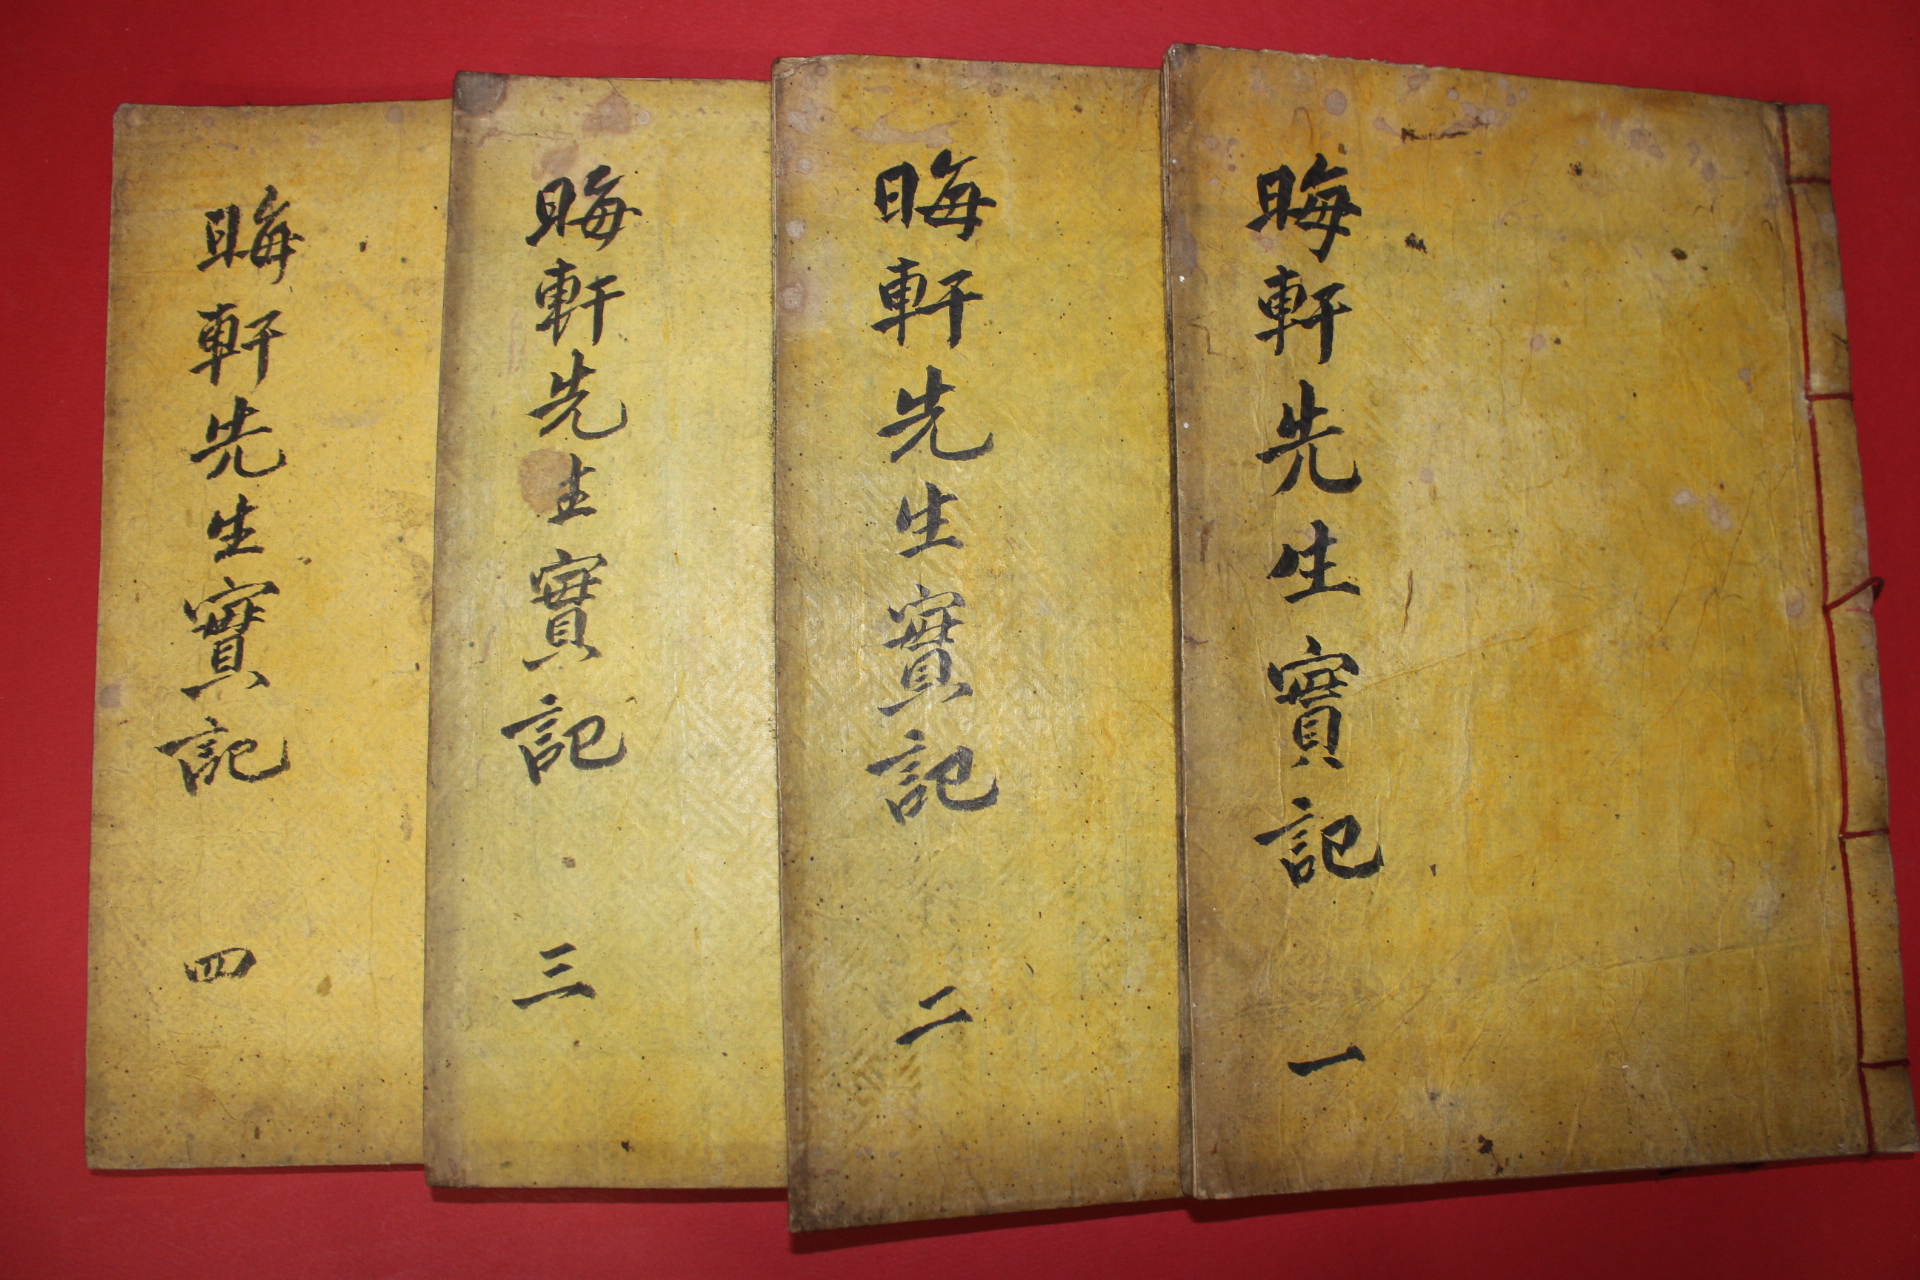 晦軒先生實記 一
晦軒先生實記 二
晦軒先生實記 三
晦軒先生實記 四